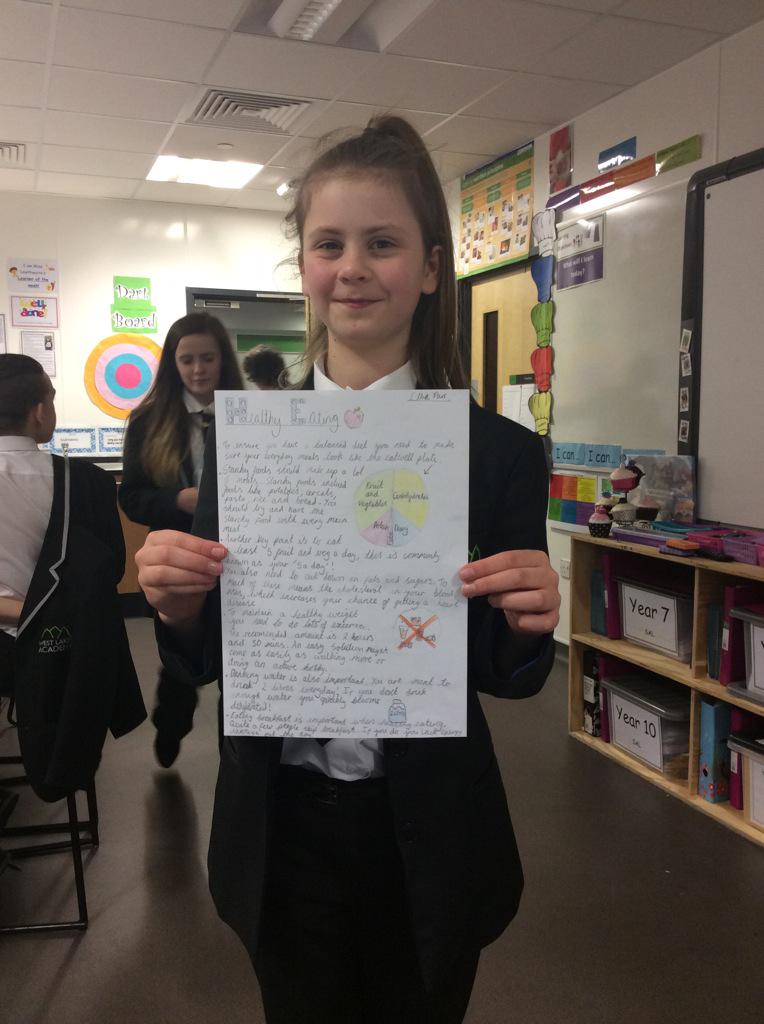 Healthy Eating
To ensure you have a balanced diet you need to make
sure your everyday meals look like the eatwell plate.
Starchy foods should make up a lot
of meals. Starchy foods included
foods like potatoes, cereals,
pasta, rice and bread. You
should try and have one
starchy food with every main
meal
Fruit
and
Vegetables
Carbohydrates
Dairy
Another key point is to eat
least 5 fruit and veg a day, this is commonly
known as your "5 a day"!
You also need to cut down on fats and sugars. To
much of these means the cholesterol in your blood
rises, which increases your chance of getting a heart
disease
To maintain a healthy weight
you need to do lots of exercise.
The recomended amount is 2 hours
and 30 mins. An easy solution might
come as easily as walking more or
doing an active hobby.
Drinking water is also important. You are meant to
drink 2 litres everyday! If you don't drink
enough water you quickly become
dehydrated!
Eating breakfast is important when healthy eating.
Quite a few people skip breakfast. If you do you lack energy
Dart
Board
well
done
I can...
I can...
Year 7
Year 10
WEST LAKES
ACADEMY